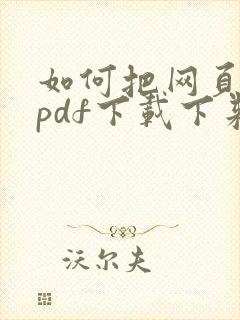 如何把网页
pdf下载下来
沃尔夫